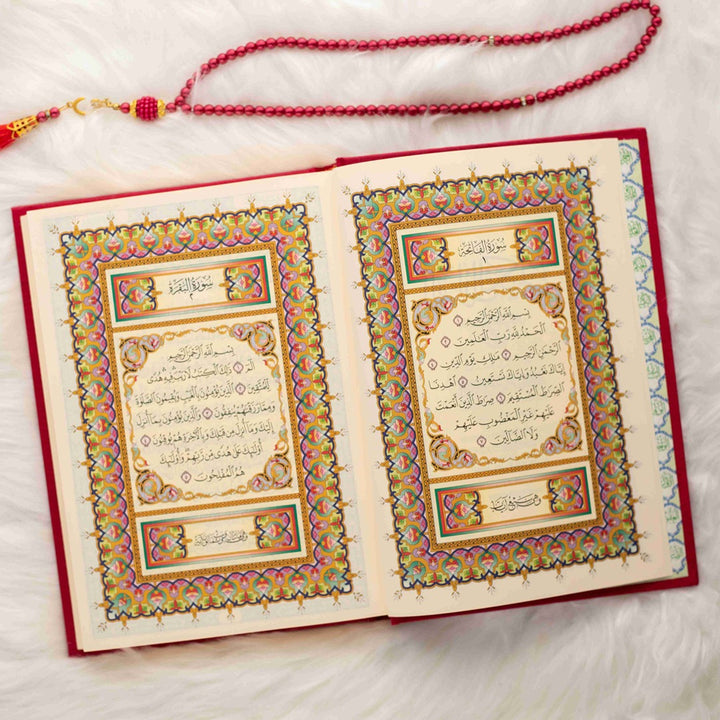 سُورَةُ الفَاتِحَةِ
١
بِسْمِ ٱللَّهِ ٱلرَّحْمَٰنِ ٱلرَّحِيمِ ١
ٱلْحَمْدُ لِلَّهِ رَبِّ ٱلْعَٰلَمِينَ ٢
ٱلرَّحْمَٰنِ ٱلرَّحِيمِ ٣ مَٰلِكِ يَوْمِ ٱلدِّينِ ٤
إِيَّاكَ نَعْبُدُ وَإِيَّاكَ نَسْتَعِينُ ٥ ٱهْدِنَا
ٱلصِّرَٰطَ ٱلْمُسْتَقِيمَ ٦ صِرَٰطَ ٱلَّذِينَ أَنْعَمْتَ
عَلَيْهِمْ غَيْرِ ٱلْمَغْضُوبِ عَلَيْهِمْ
وَلَا ٱلضَّآلِّينَ ٧
وهي سبع آيات
سُورَةُ البَقَرَةِ
٢
بِسْمِ ٱللَّهِ ٱلرَّحْمَٰنِ ٱلرَّحِيمِ
الٓمٓ ١ ذَٰلِكَ ٱلْكِتَٰبُ لَا رَيْبَ فِيهِ هُدًى
لِّلْمُتَّقِينَ ٢ ٱلَّذِينَ يُؤْمِنُونَ بِٱلْغَيْبِ وَيُقِيمُونَ ٱلصَّلَوٰةَ
وَمِمَّا رَزَقْنَٰهُمْ يُنفِقُونَ ٣ وَٱلَّذِينَ يُؤْمِنُونَ بِمَآ أُنزِلَ
إِلَيْكَ وَمَآ أُنزِلَ مِن قَبْلِكَ وَبِٱلْأٓخِرَةِ هُمْ يُوقِنُونَ ٤
أُو۟لَٰٓئِكَ عَلَىٰ هُدًى مِّن رَّبِّهِمْ وَأُو۟لَٰٓئِكَ
هُمُ ٱلْمُفْلِحُونَ ٥